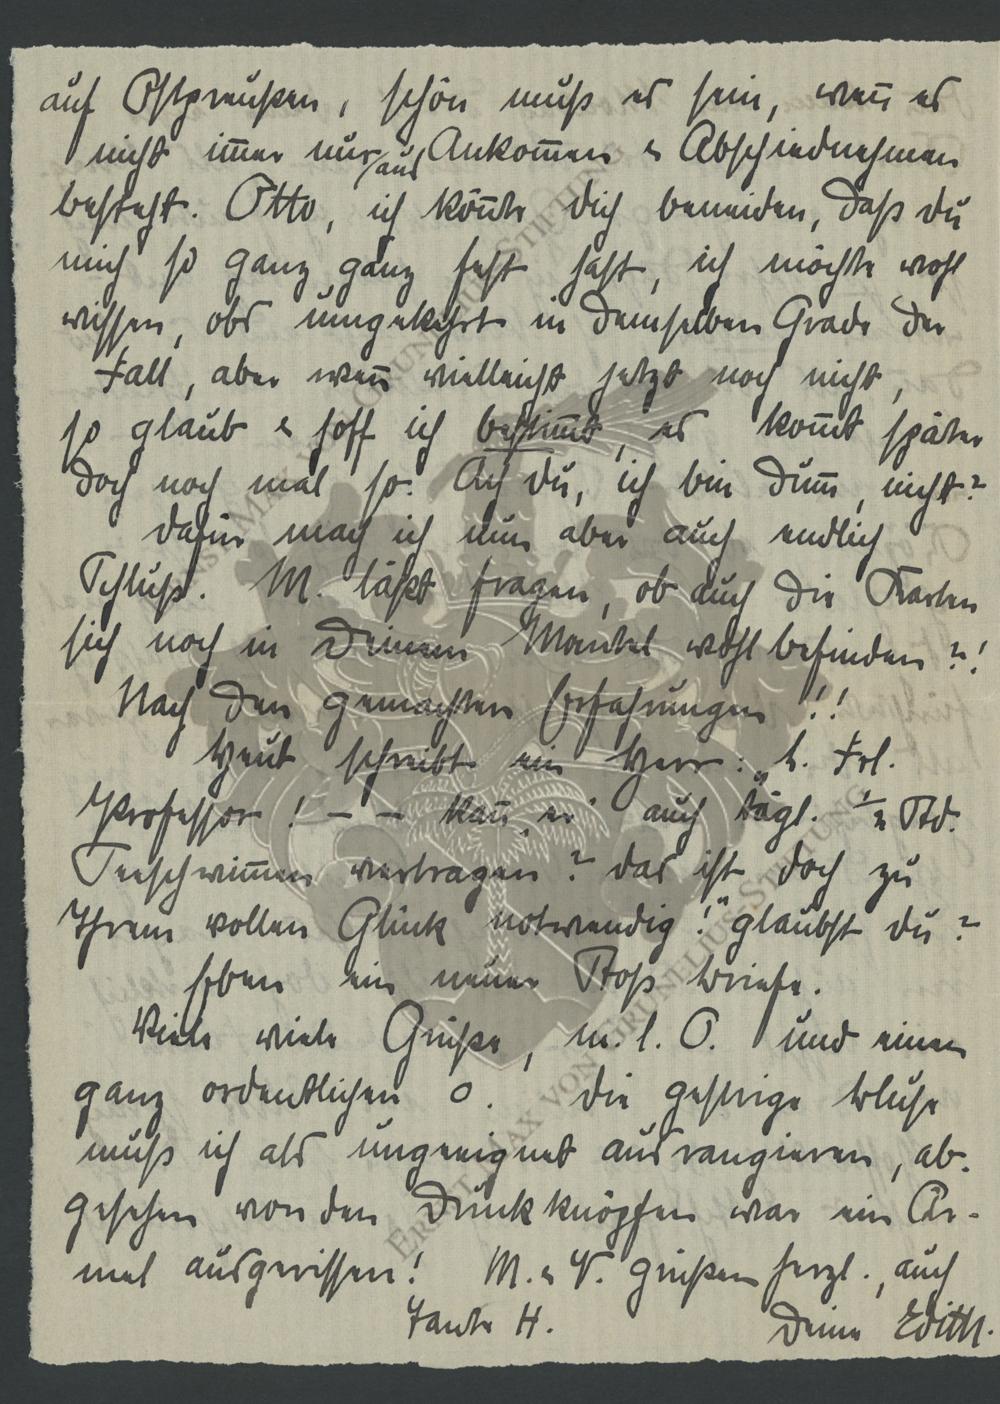 auf Ostpreußen, schön muß es sein, weñ es
nicht im̃er nur aus Ankom̃en & Abschiednehmen
besteht. Otto, ich kön̄te dich beneiden, daß du
mich so ganz, ganz fest hast, ich möchte wohl
wissen, obs umgekehrt in demselben Grade der
Fall, aber weñ vielleicht jetzt noch nicht,
so glaub & hoff ich bestim̃t, es kom̃t später
doch noch mal so. Ach du, ich bin dum̃, nicht?
dafür mach ich nun aber auch endlich
Schluß. M. läßt fragen, ob auch die Karten
sich noch in Deinem Mantel wohl befinden?!
Nach den gemachten Erfahrungen!!
Heut schreibt ein Herr: „b. Frl.
Professor! – – kañ „er" auch tägl. ½ Std.
Seeschwim̃en vertragen? das ist doch zu
Ihrem vollen Glück notwendig!" glaubst du?
Eben ein neuer Stoß Briefe.
Viele viele Grüße, m. l. O. und einen
ganz ordentlichen o. die gestrige Bluse
muß ich als ungeeignet ausrangieren, ab-
gesehen von den Druckknöpfen war ein Är-
mel ausgerissen! M. & V. grüßen herzl., auch
Tante H. Deine Edith.
ERNST-MAX VON GRUNELIUS-STIFTUNG
ERNST MAX VON GRUNELIUS-STIFTUNG